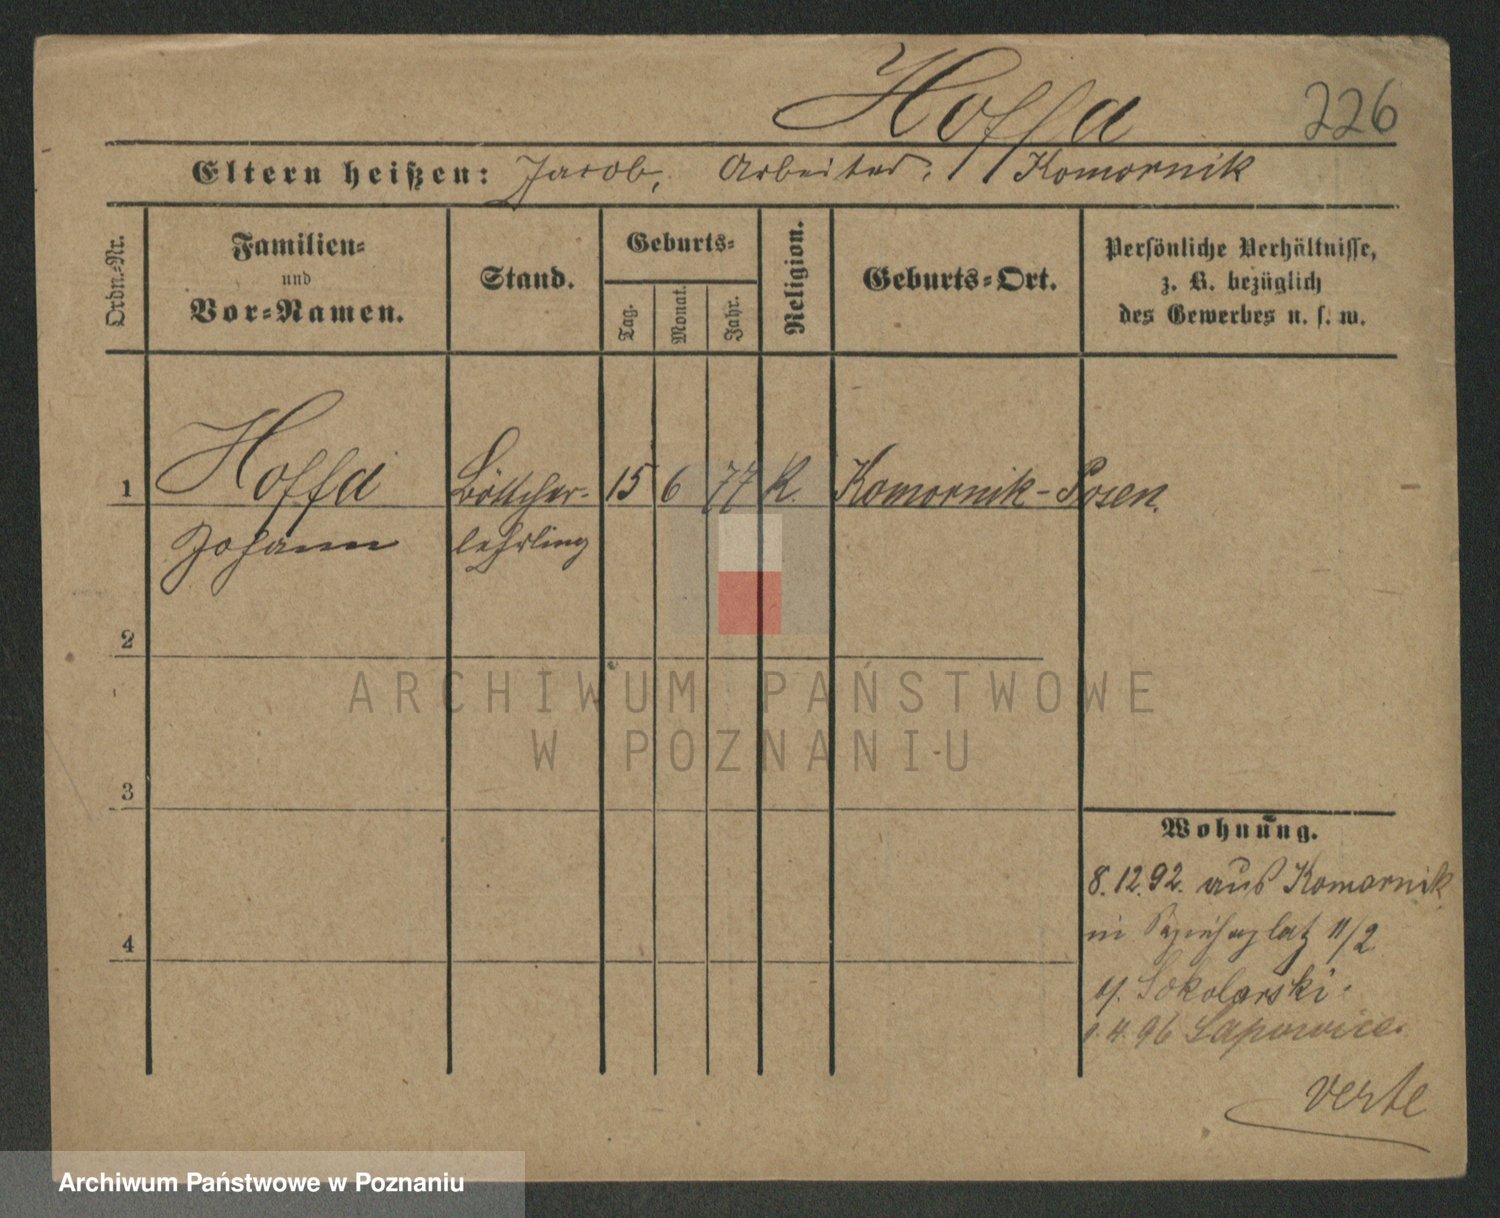 Hoffa 226
Eltern heißen: Jacob, Arbeiter, Komornik
Ordn.-Nr.
Familien-
und
Vor-Namen.
Stand.
Geburts-
Tag.
Monat.
Jahr.
Religion.
Geburts-Ort.
Persönliche Verhältnisse,
z. B. bezüglich
des Gewerbes u. s. w.
1 Hoffa Böttcher- 15 6 77 K. Komornik - Posen.
Johann lehrling
2
ARCHIWUM PAŃSTWOWE
W POZNANIU
3
Wohnung.
8.12.92. aus Komornik
in 11/2
4
Sokolorski
1.4.96
verte
Archiwum Państwowe w Poznaniu